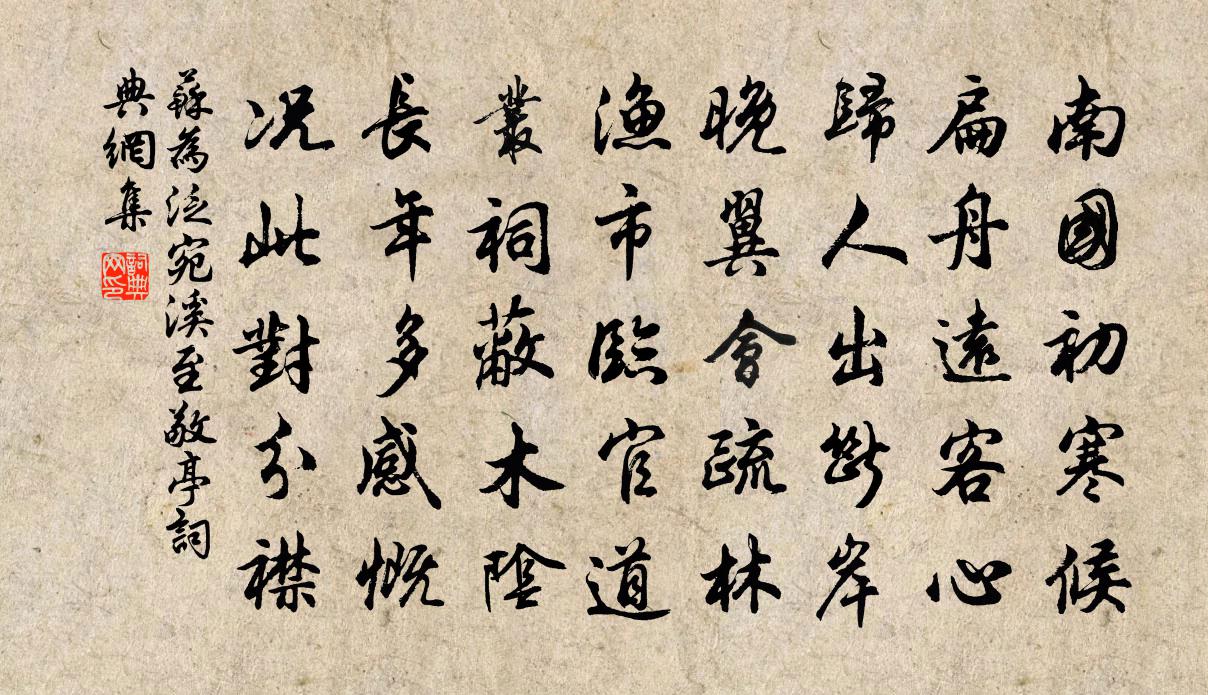 南國初寒候
扁舟遠客心
歸人出斷岸
晚翼會疏林
漁市臨官道
叢祠蔽木陰
長年多感慨
況此對分襟
蘇為泛宛溪至敬亭詞
典網集
詞典網印